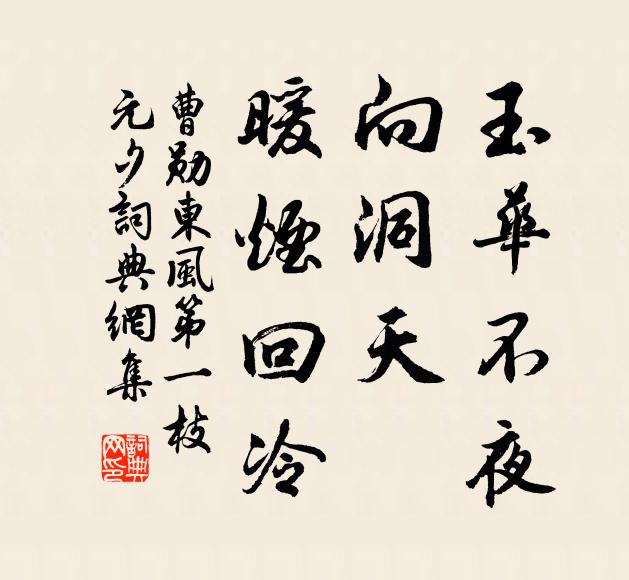 玉華不夜
向洞天
暖煙回冷
曹勛東風第一枝
元夕詞典網集
詞典
网印